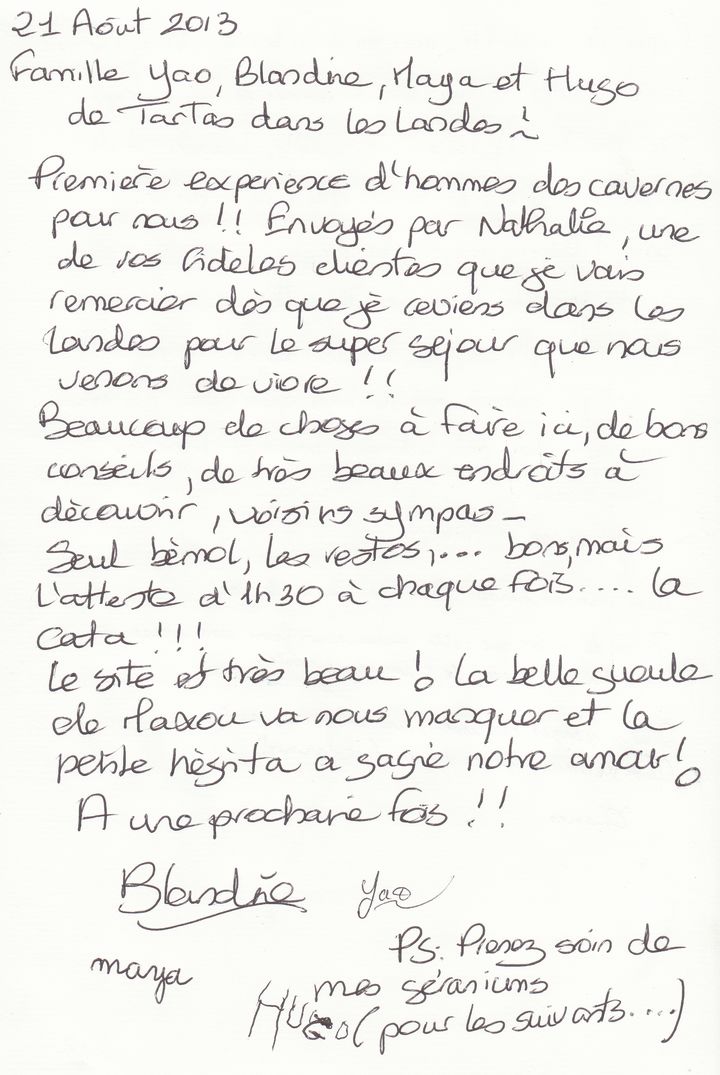 21 Août 2013
Famille Yao, Blandine, Maya et Hugo
de Tartas dans les Landes !
Première experience d'hommes des cavernes
pour nous !! Envoyés par Nathalie, une
de vos fidèles clientes que je vais
remercier dès que je reviens dans les
Landes pour le super séjour que nous
venons de vivre !!
Beaucoup de choses à faire ici, de bons
conseils, de très beaux endroits à
découvrir, voisins sympas -
Seul bémol, les restos,... bons, mais
l'attente d'1h30 à chaque fois.... la
cata !!!
Le site et très beau ! La belle gueule
de Maxou va nous manquer et la
petite hégita a gagné notre amour !
A une prochaine fois !!
Blandine Yao
PS: Prenez soin de
maya
mes géraniums
Hugo (pour les suivants....)